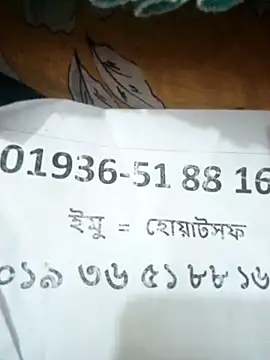 01936-51 88 16
ইমু = হোয়াটসফ
০১৯ ৩৬ ৫১ ৮৮ ১৬